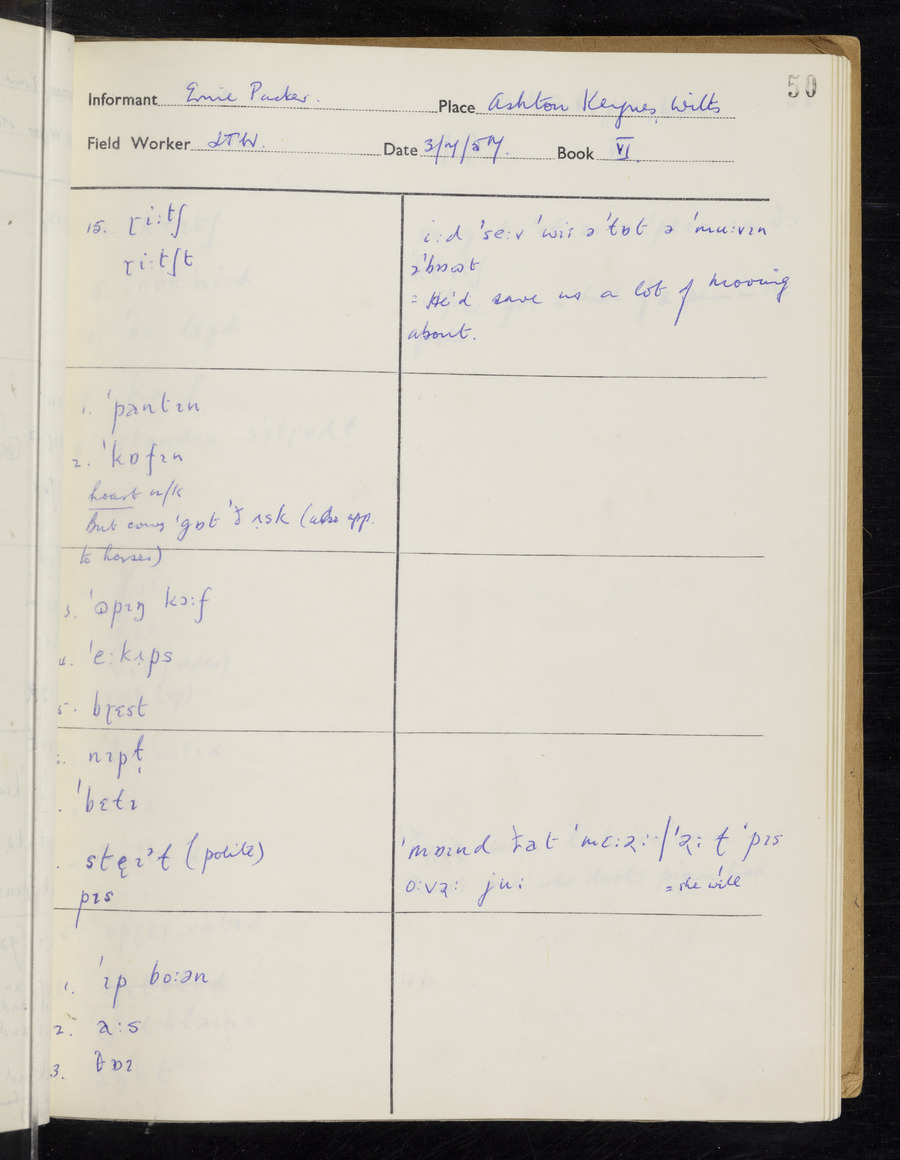 50
Informant Ernie Packer. Place Ashton Keynes, Wilts
Field Worker JTW. Date 3/7/57. Book VI.
15. ɽi:tʃ
ɽi:tʃt
i:d 'se:v 'wiɪ ə'ɫɒt ə 'mu:vɪn
ə'bɒʊt
= He'd save us a lot of moving
about.
1. 'pantɪn
2. 'kɒfɪn
hoast n/k
But cows 'gɒt ð ʌsk (also app.
to horses)
3. 'ɒpɪŋ kɔ:f
4. 'e:kʌps
5. bɽɛst
nɪpɫ
'bɛɫɪ
stɛɪəɫ (polite)
pɪs
'mɒɪnd ðat 'mɛ:ɚ: / 'ɚ: ɫ 'pɪs
o:vɚ: ju: = she will
1. 'ɪp bo:ən
2. a:s
3. ɫɒɪ